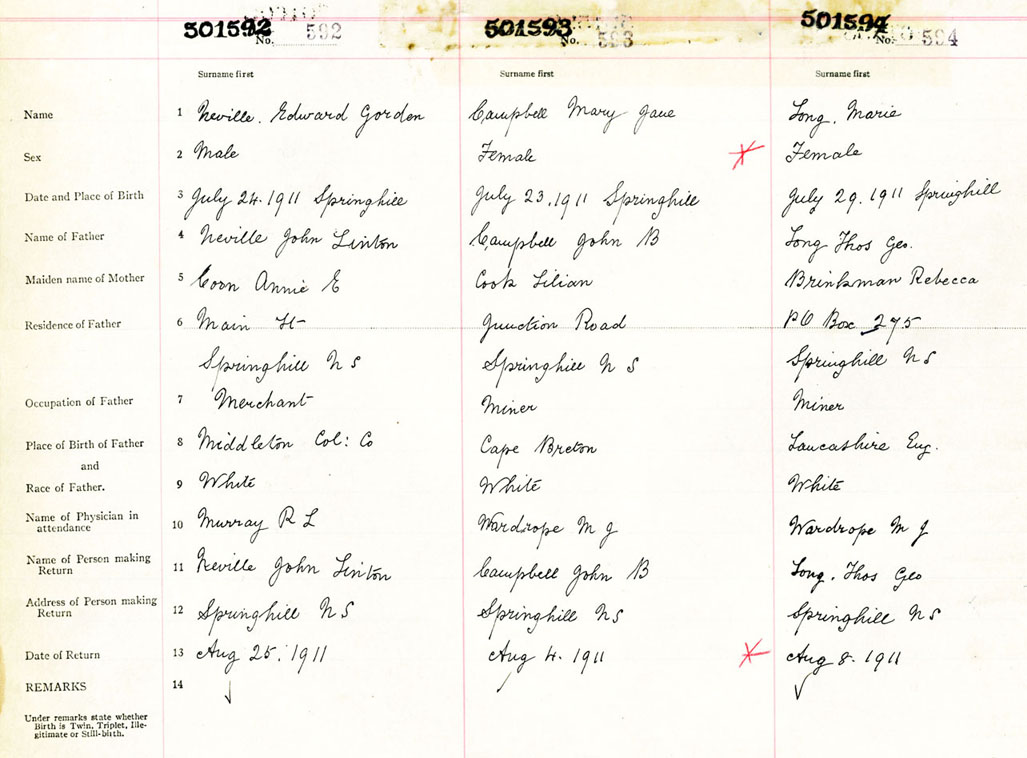 501592 501593 501594
No. 592 No. 593 No. 594
Surname first Surname first Surname first
Name 1 Neville. Edward Gorden Campbell Mary Jane Long, Marie
Sex 2 Male Female Female
Date and Place of Birth 3 July 24.1911 Springhill July 23.1911 Springhill July 29.1911 Springhill
Name of Father 4 Neville John Linton Campbell John B Long Thos Geo.
Maiden name of Mother 5 Coon Annie E Cook Lilian Brinkman Rebecca
Residence of Father 6 Main St Junction Road PO Box 275
Springhill N S Springhill N S Springhill N S
Occupation of Father 7 Merchant Miner Miner
Place of Birth of Father 8 Middleton Col: Co Cape Breton Lancashire Eng.
and
Race of Father. 9 White White White
Name of Physician in
attendance 10 Murray R L Wardrope M J Wardrope M J
Name of Person making
Return 11 Neville John Linton Campbell John B Long, Thos Geo
Address of Person making
Return 12 Springhill N S Springhill N S Springhill N S
Date of Return 13 Aug 25. 1911 Aug 4. 1911 Aug 8. 1911
REMARKS 14
Under remarks state whether
Birth is Twin, Triplet, Ille-
gitimate or Still-birth.